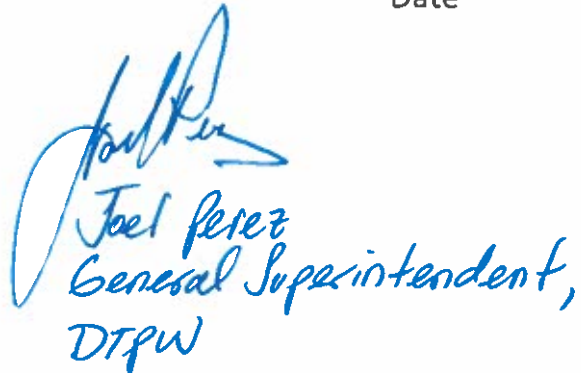 Date
Joel Perez
General Superintendent,
DTPW